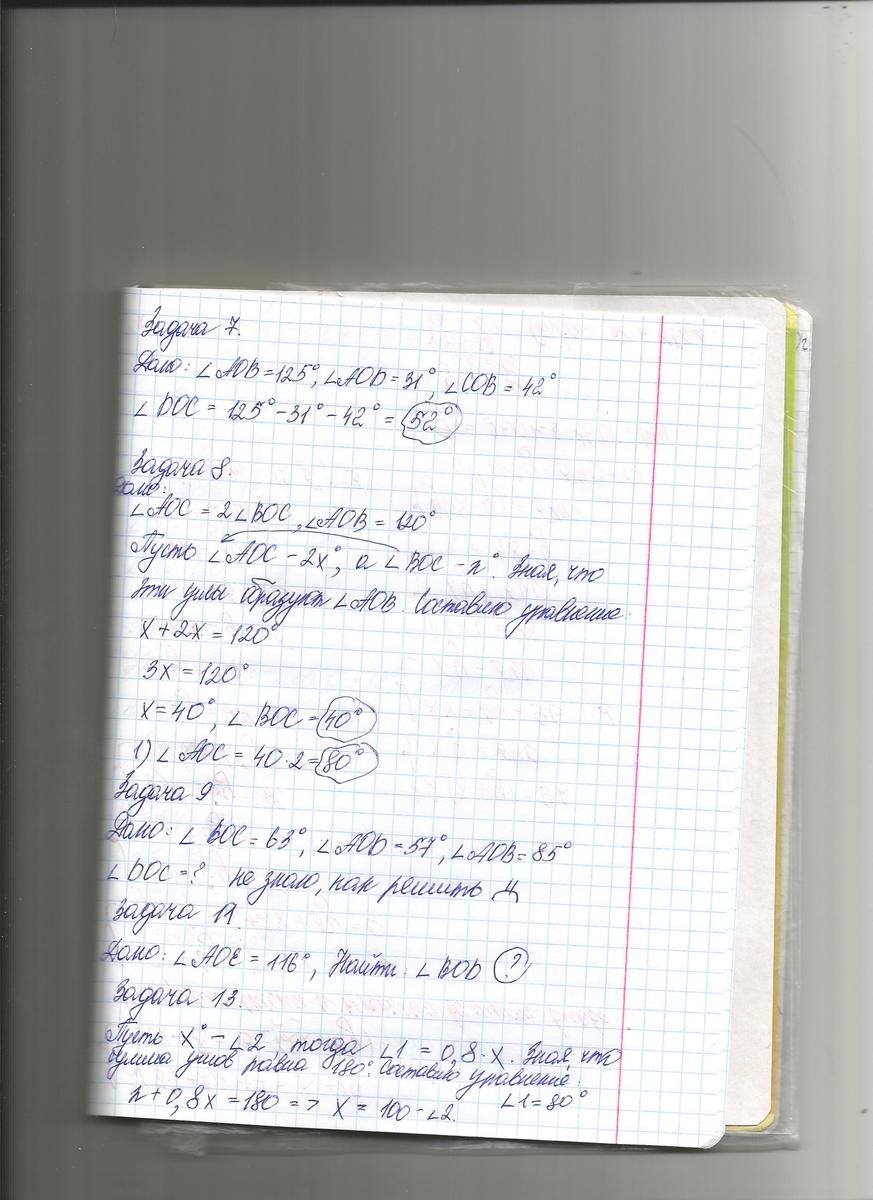 Задача 7.
Дано: ∠AOB = 125°, ∠AOD = 31°, ∠COB = 42°
∠DOC = 125° - 31° - 42° = 52°
Задача 8.
Дано:
∠AOC = 2∠BOC, ∠AOB = 120°
Пусть ∠AOC - 2x°, а ∠BOC - x°. Зная, что
эти углы образуют ∠AOB. Составлю уравнение:
x + 2x = 120°
3x = 120°
x = 40°, ∠BOC = 40°
1) ∠AOC = 40 · 2 = 80°
Задача 9
Дано: ∠BOC = 63°, ∠AOD = 57°, ∠AOB = 85°
∠DOC = ? не знаю, как решить
Задача 11.
Дано: ∠AOE = 116°, Найти: ∠BOD ?
Задача 13.
Пусть x° - ∠2, тогда ∠1 = 0,8 · x. Зная, что
сумма углов равна 180°. Составлю уравнение:
x + 0,8x = 180 => x = 100 - ∠2. ∠1 = 80°